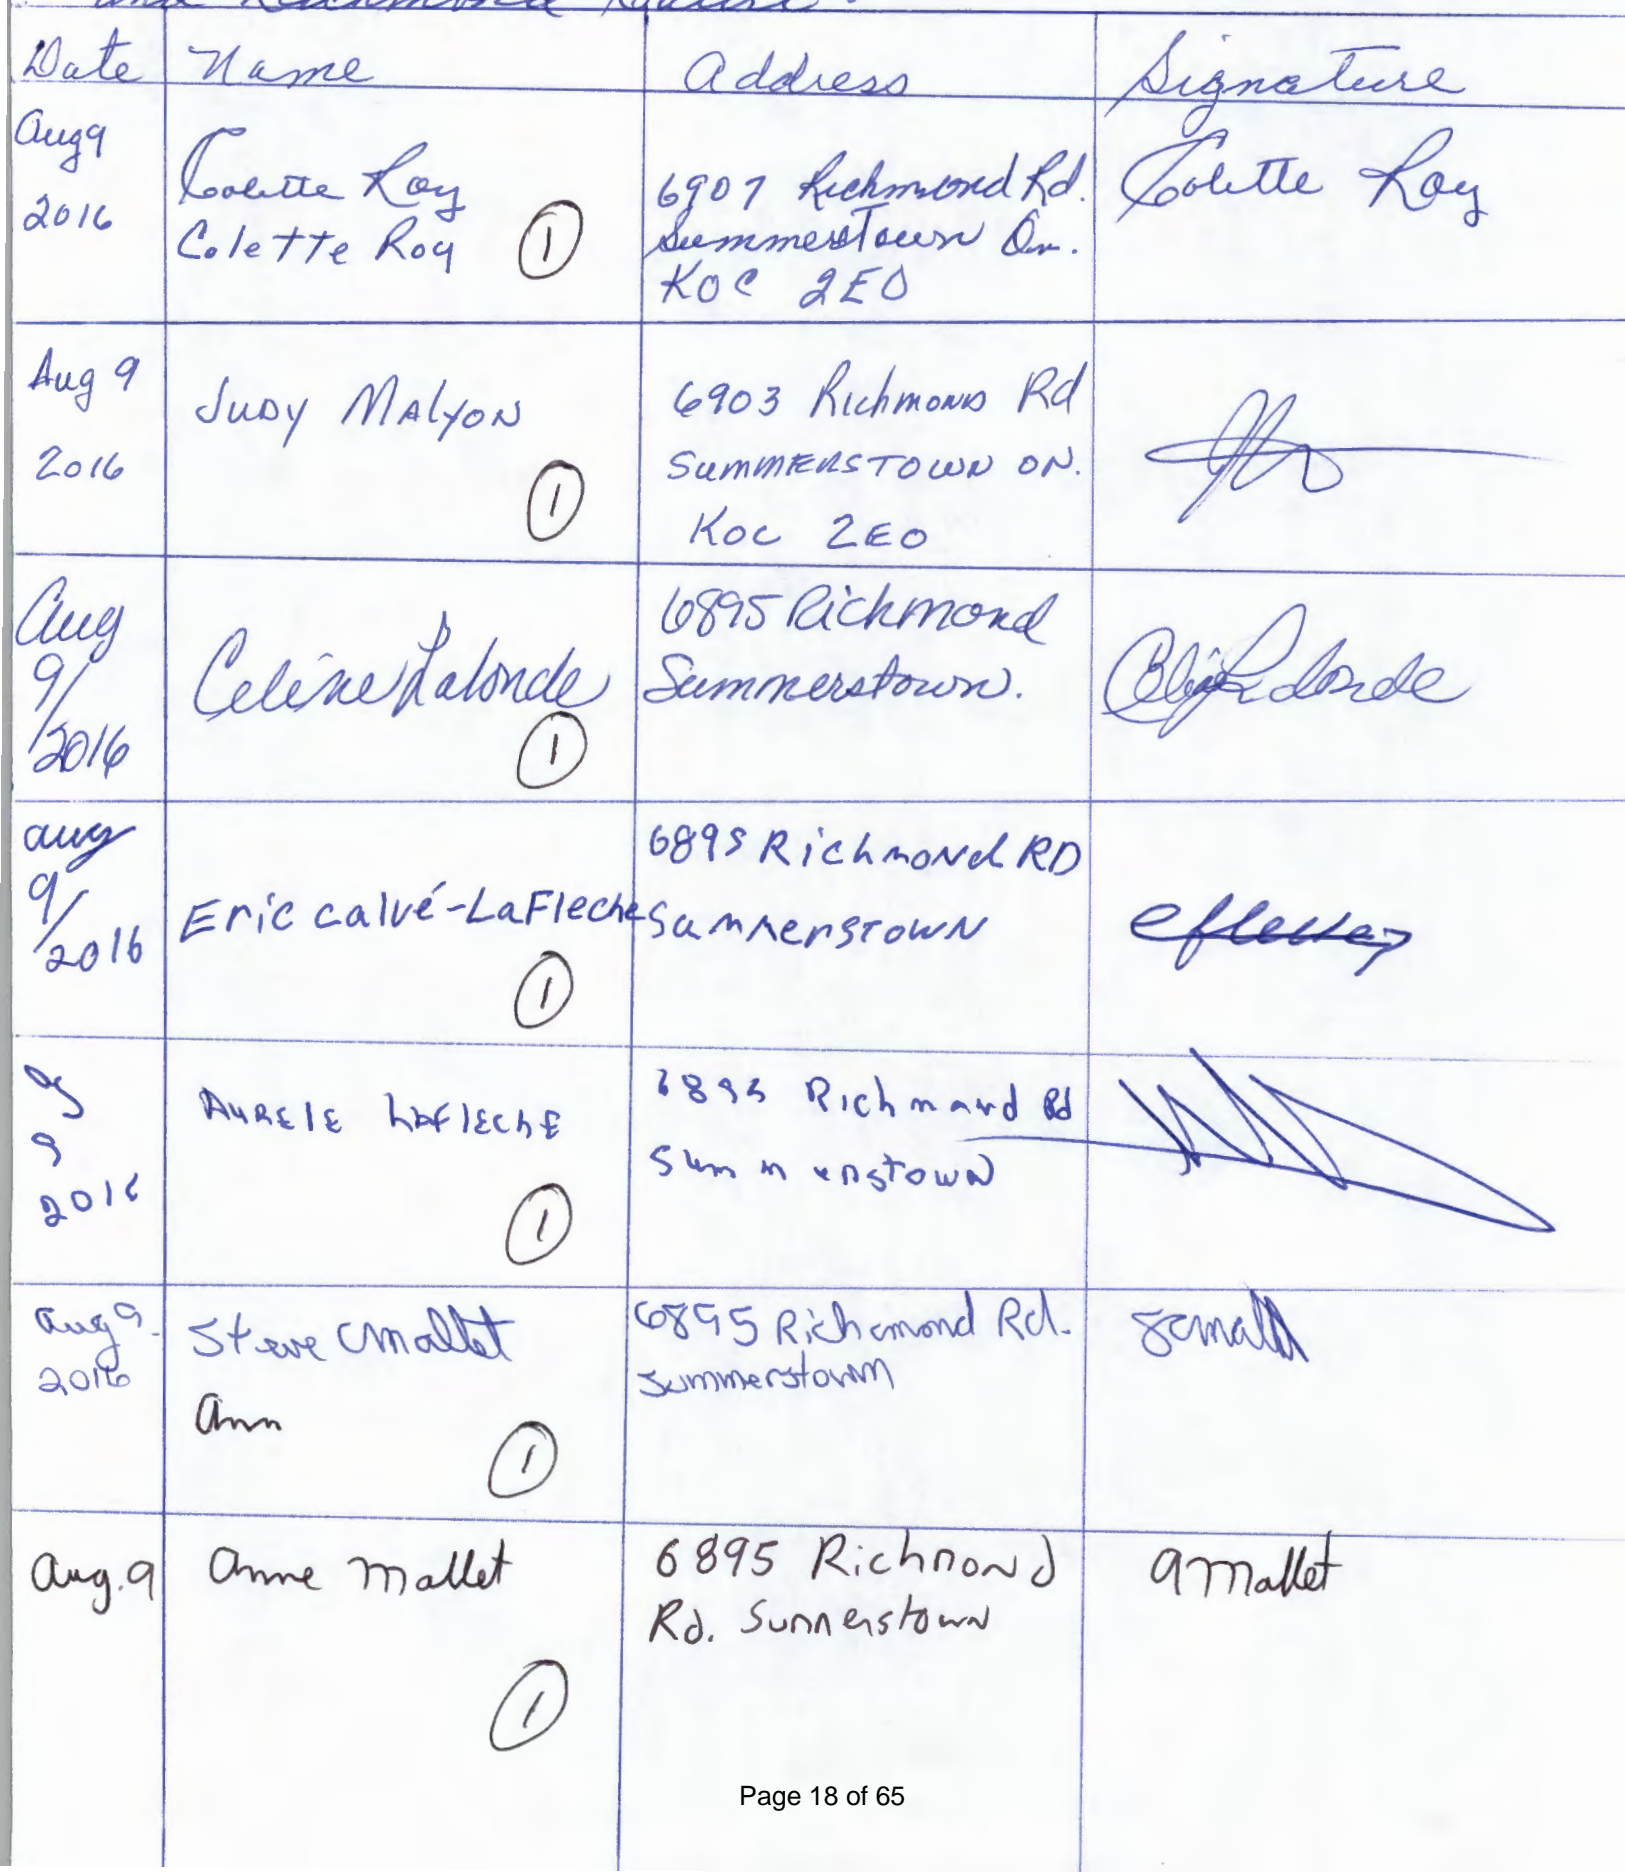 and Richmond
Date Name Address Signature
Aug 9
2016
Colette Roy
Colette Roy
1
6907 Richmond Rd.
Summerstown On.
K0C 2E0
Colette Roy
Aug 9
2016
Judy Malyon
1
6903 Richmond Rd
Summerstown ON.
K0C 2E0
Aug
9/
2016
Celine Lalonde
1
6895 Richmond
Summerstown.
Celine Lalonde
Aug
9/
2016
Eric Calvé-LaFleche
1
6895 Richmond RD
Summerstown
9
2016
Aurele Lafleche
1
6895 Richmond Rd
Summerstown
Aug 9
2016
Steve Mallet
Ann
1
6895 Richmond Rd.
Summerstown
Aug. 9
Anne Mallet
1
6895 Richmond
Rd. Summerstown
A Mallet
Page 18 of 65